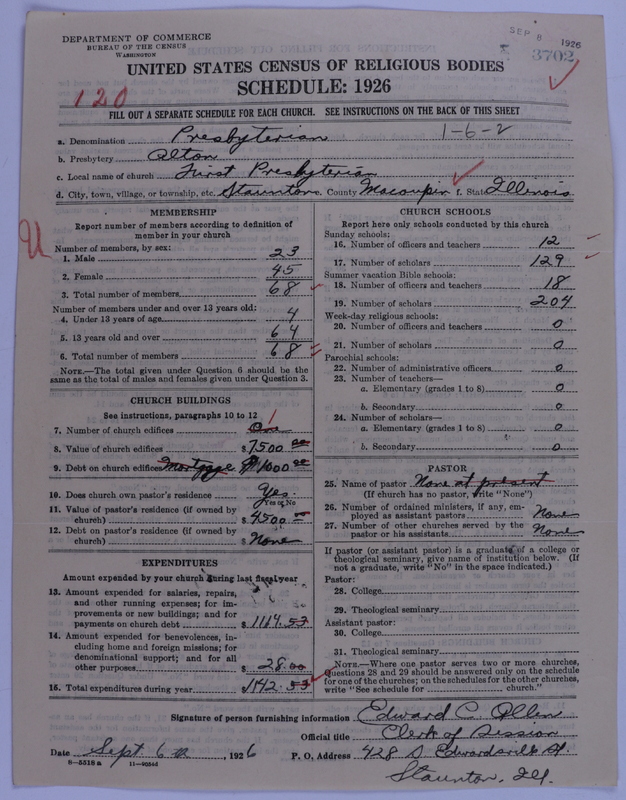 DEPARTMENT OF COMMERCE
BUREAU OF THE CENSUS
WASHINGTON
SEP 8 1926
3702
UNITED STATES CENSUS OF RELIGIOUS BODIES
SCHEDULE: 1926
120
FILL OUT A SEPARATE SCHEDULE FOR EACH CHURCH. SEE INSTRUCTIONS ON THE BACK OF THIS SHEET
a. Denomination Presbyterian 1-6-2
b. Presbytery Alton
c. Local name of church First Presbyterian
d. City, town, village, or township, etc. Staunton e. County Macoupin f. State Illinois
MEMBERSHIP
Report number of members according to definition of
member in your church
Number of members, by sex:
1. Male 23
2. Female 45
3. Total number of members 68
Number of members under and over 13 years old:
4. Under 13 years of age 4
5. 13 years old and over 64
6. Total number of members 68
NOTE.—The total given under Question 6 should be
same as the total of males and females given under Question 3.
CHURCH BUILDINGS
See instructions, paragraphs 10 to 12
7. Number of church edifices One 1
8. Value of church edifices $ 7500 00
9. Debt on church edifices Mortgage $ 1000 00
10. Does church own pastor's residence Yes
Yes or No
11. Value of pastor's residence (if owned by
church) $ 4500 00
12. Debt on pastor's residence (if owned by
church) $ None
EXPENDITURES
Amount expended by your church during last fiscal year
13. Amount expended for salaries, repairs,
and other running expenses; for im-
provements or new buildings; and for
payments on church debt $ 1114.53
14. Amount expended for benevolences, in-
cluding home and foreign missions; for
denominational support; and for all
other purposes $ 28.00
15. Total expenditures during year $ 1142.53
CHURCH SCHOOLS
Report here only schools conducted by this church
Sunday schools:
16. Number of officers and teachers 12
17. Number of scholars 129
Summer vacation Bible schools:
18. Number of officers and teachers 18
19. Number of scholars 204
Week-day religious schools:
20. Number of officers and teachers 0
21. Number of scholars 0
Parochial schools:
22. Number of administrative officers 0
23. Number of teachers—
a. Elementary (grades 1 to 8) 0
b. Secondary 0
24. Number of scholars—
a. Elementary (grades 1 to 8) 0
b. Secondary 0
PASTOR
25. Name of pastor None at present
(If church has no pastor, write "None")
26. Number of ordained ministers, if any, em-
ployed as assistant pastors None
27. Number of other churches served by the
pastor or his assistants None
If pastor (or assistant pastor) is a graduate of a college or
theological seminary, give name of institution below. (If
not a graduate, write "No" in the space indicated.)
Pastor:
28. College
29. Theological seminary
Assistant pastor:
30. College
31. Theological seminary
NOTE.—Where one pastor serves two or more churches,
questions 28 and 29 should be answered only on the schedule
for one of the churches; on the schedules for the other churches,
write "See schedule for church."
Signature of person furnishing information Edward C. Allen
Official title Clerk of Session
Date Sept 6, 1926 P. O. Address 428 S Edwardsville St.
8—5518 a
Staunton, Ill.